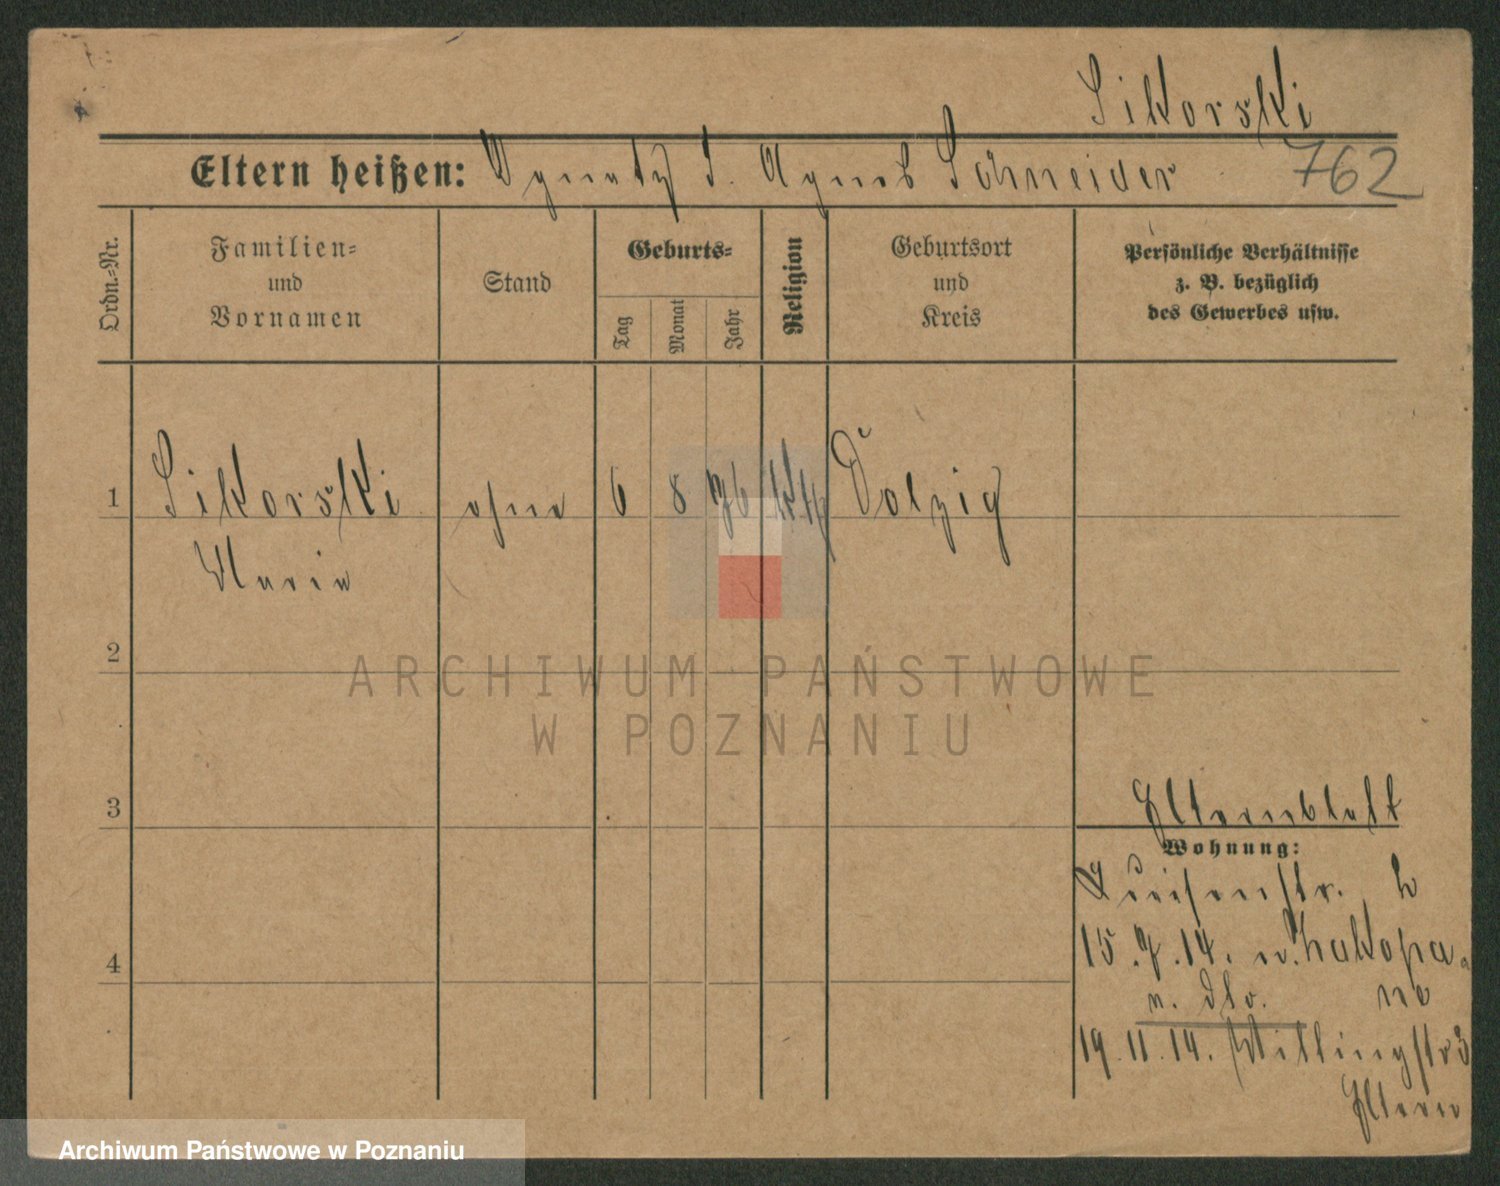 Sikorski
Eltern heißen: Ignatz J. Agnes Schneider 762
Ordn.-Nr.
Familien-
und
Vornamen
Stand
Geburts-
Tag
Monat
Jahr
Religion
Geburtsort
und
Kreis
Persönliche Verhältnisse
z. B. bezüglich
des Gewerbes usw.
1 Sikorski ohne 6 8 76 kth Dolzig
Maria
2
3
Elternblatt
Wohnung:
Luisenstr. 2
15.7.14. n. Zakopa-
ne
4
19.11.14. Wittingstr 3
Eltern
ARCHIWUM PAŃSTWOWE
W POZNANIU
Archiwum Państwowe w Poznaniu